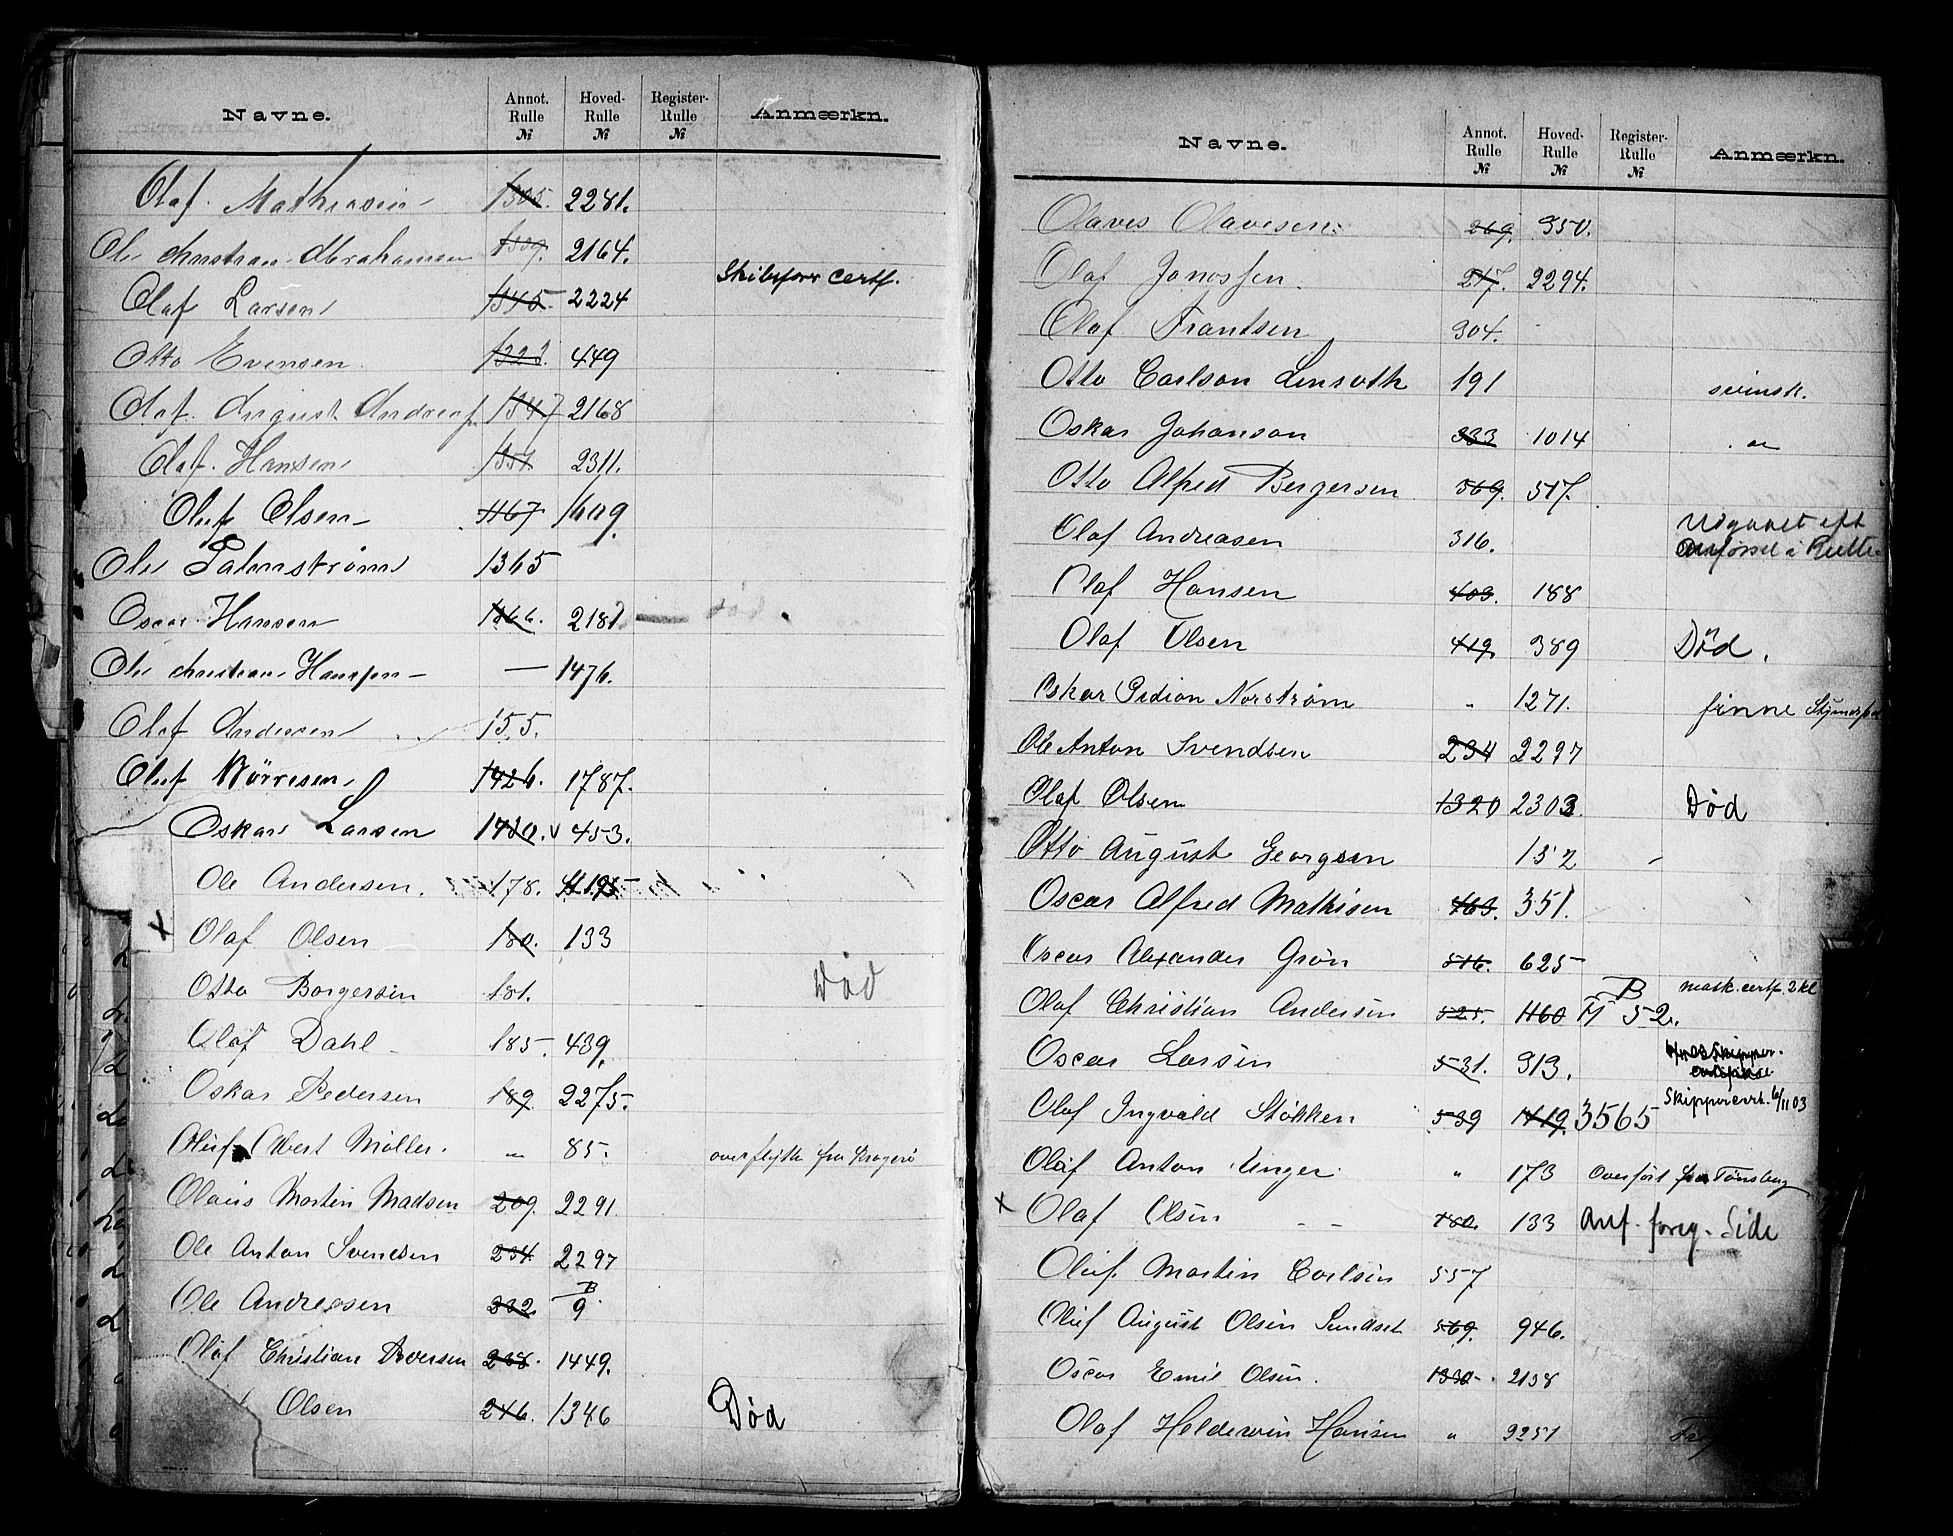 Navne. Annot. Rulle № Hoved- Rulle № Register- Rulle № Anmærkn.
Olaf Mathiesen 1305. 2281.
Ole Christian Abrahamsen 1339. 2164.
Olaf Larsen 1345 2224 Skibsfører certf.
Otto Evensen. 1323. 449
Olaf August Andreas 1347 2168
Olaf Hansen 1351 2311.
Oluf Olsen 1167 1609.
Ole Palmstrøm 1365
Oscar Hansen 1366. 2181 død.
Ole Christian Hanssen — 1476.
Olaf Andersen 155.
Oluf Nörresen 1426. 1787.
Oskar Larsen 1430. v 453.
Ole Andersen. 178. 1195
x Olaf Olsen 180. 133
Otto Borgersen 181. Død
Olaf Dahl 185. 439.
Oskar Pedersen 189 2275.
Oluf Albert Möller. " 85. overflytte fra Kragerö
Olaus Martin Madsen 209. 2291
Ole Anton Svendsen 234. 2297
Ole Andreasen 232. B 9.
Olaf Christian Iversen 238. 1449.
Olsen 246. 1346 Død
Navne. Annot. Rulle № Hoved- Rulle № Register- Rulle № Anmærkn.
Olaves Olavesen. 269. 350.
Olaf Janossen. 217. 2294.
Olaf Frantsen 304.
Otto Carlson Linroth 191 svensk.
Oskar Johanson 333 1014
Otto Alfred Bergersen 369. 517.
Olaf Andreasen 316. Udgaaet eft
Anførsel i Rulle
Olaf Hansen 403. 188
Olaf Olsen 419. 389 Død.
Oskar Gidion Norström " 1271. finne
Ole Anton Svendsen 234 2297
Olaf Olsen 1320 2303 Død
Otto August Georgsen 152
Oscar Alfred Mathisen 463. 351.
Oscar Alexander Grön 516. 625
Olaf Christian Andersen 525. 1160 B M 52. mask. certf. 2 kl
Oscar Larsen 531. 313.
Olaf Ingvald Støkken 539 1419. 3565 Skippercert. 6/11 03
Olaf Anton Unger. " 173 Overført fra Tønsberg
x Olaf Olsen 180. 133 Anf. foreg. Side
Oluf Martin Carlsen 557
Oluf August Olsen Sundset 569. 946.
Oscar Emil Olsen. 1330. 2138
Olaf Helderwin Hansen " 2251